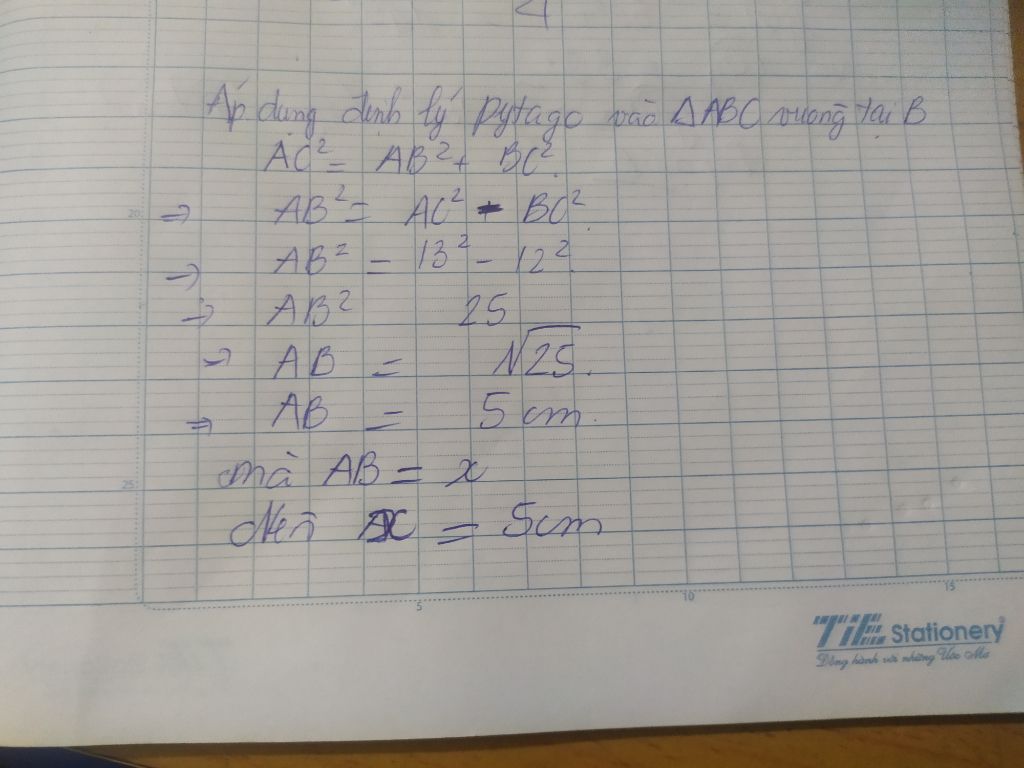 Áp dụng định lý pytago vào ΔABC vuông tại B
AC² = AB² + BC².
⇒ AB² = AC² - BC².
→ AB² = 13² - 12².
→ AB² 25
→ AB = √25.
⇒ AB = 5 cm.
mà AB = x
Nên x = 5cm
20
25
5
10
15
TiE Stationery
Đồng hành với những Ước Mơ